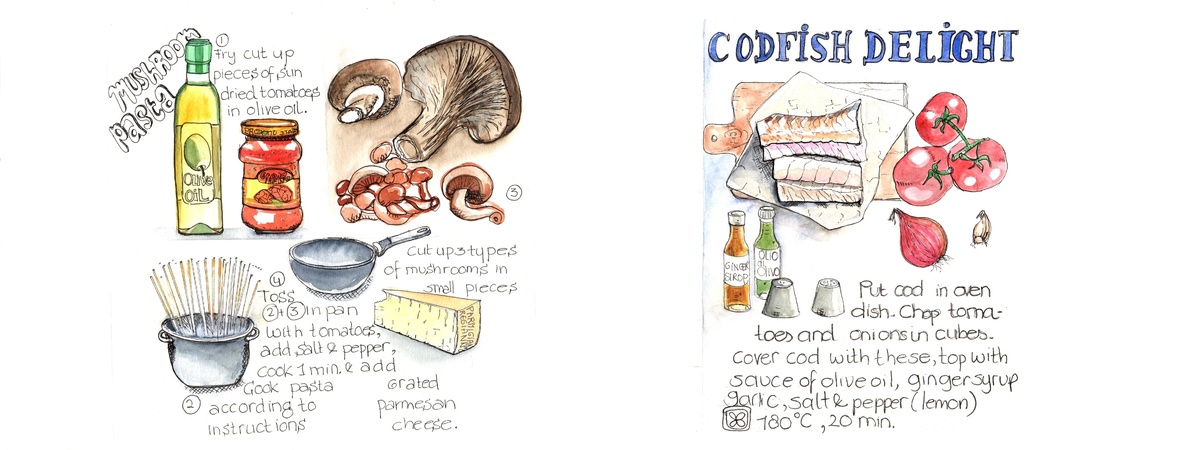 MUSHROOM
Pasta
①
Fry cut up
pieces of sun
dried tomatoes
in olive oil.
Olive
OIL
③
Cut up 3 types
of mushrooms in
small pieces
④
Toss
②+③ in pan
with tomatoes,
add salt & pepper,
cook 1 min. & add
Grated
parmesan
cheese.
PARMIGIANO
REGGIANO
Cook pasta
② according to
instructions
CODFISH DELIGHT
GINGER
SIROP
OLIO
di
OLIVO
Put cod in oven
dish. Chop toma-
toes and onions in cubes.
Cover cod with these, top with
sauce of olive oil, ginger syrup
garlic, salt & pepper (lemon)
180°C, 20 min.